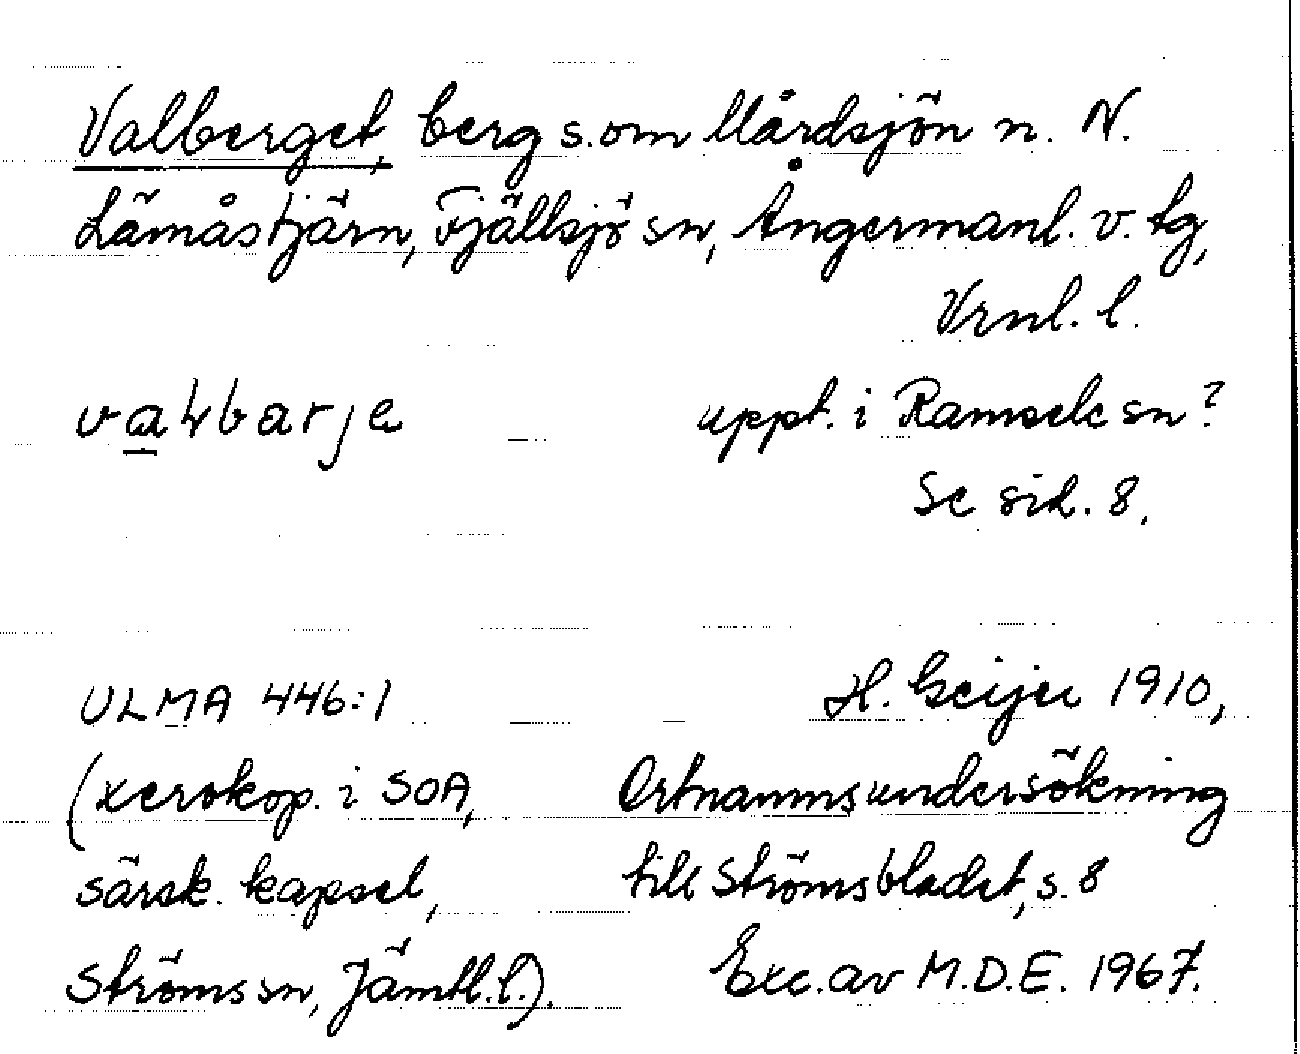 Valberget, berg s.om Mårdsjön n. N.
Lämåstjärn, Fjällsjö sn, Ångermanl. v. tg,
Vrnl. l.
valbarje uppt. i Ramsele sn?
Se sid. 8.
ULMA 446:1 H. Geijer 1910,
(xerokop. i SOA, Ortnamnsundersökning
särsk. kapsel, till Strömsbladet, s. 8
Ströms sn, Jämtl. l.). Exc. av M.D.E. 1967.